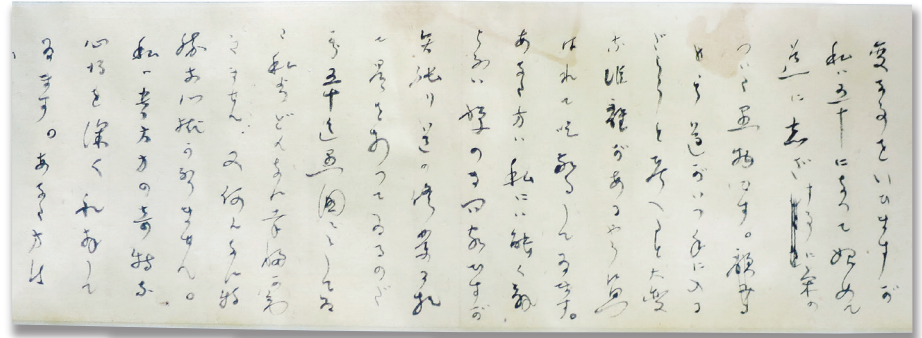 変な事をいひますが
私は五十になつて始めて
道に志ざす事に気の
ついた愚物です。
道がいつ手に入る
だらうと考へると大変
な距離があるやうに思
はれて吃驚してゐます。
あなた方は私には能く解
らない禅の専門家ですが
矢張り道の修業に於
て骨を折つてゐるのだ
から五十迄愚図々々してゐ
た私よりどんなに幸福か知
れません、又何んなに殊
勝な心掛か分りません。
私は貴方方の奇特な
心得を深く礼拝して
ゐます。あなた方は